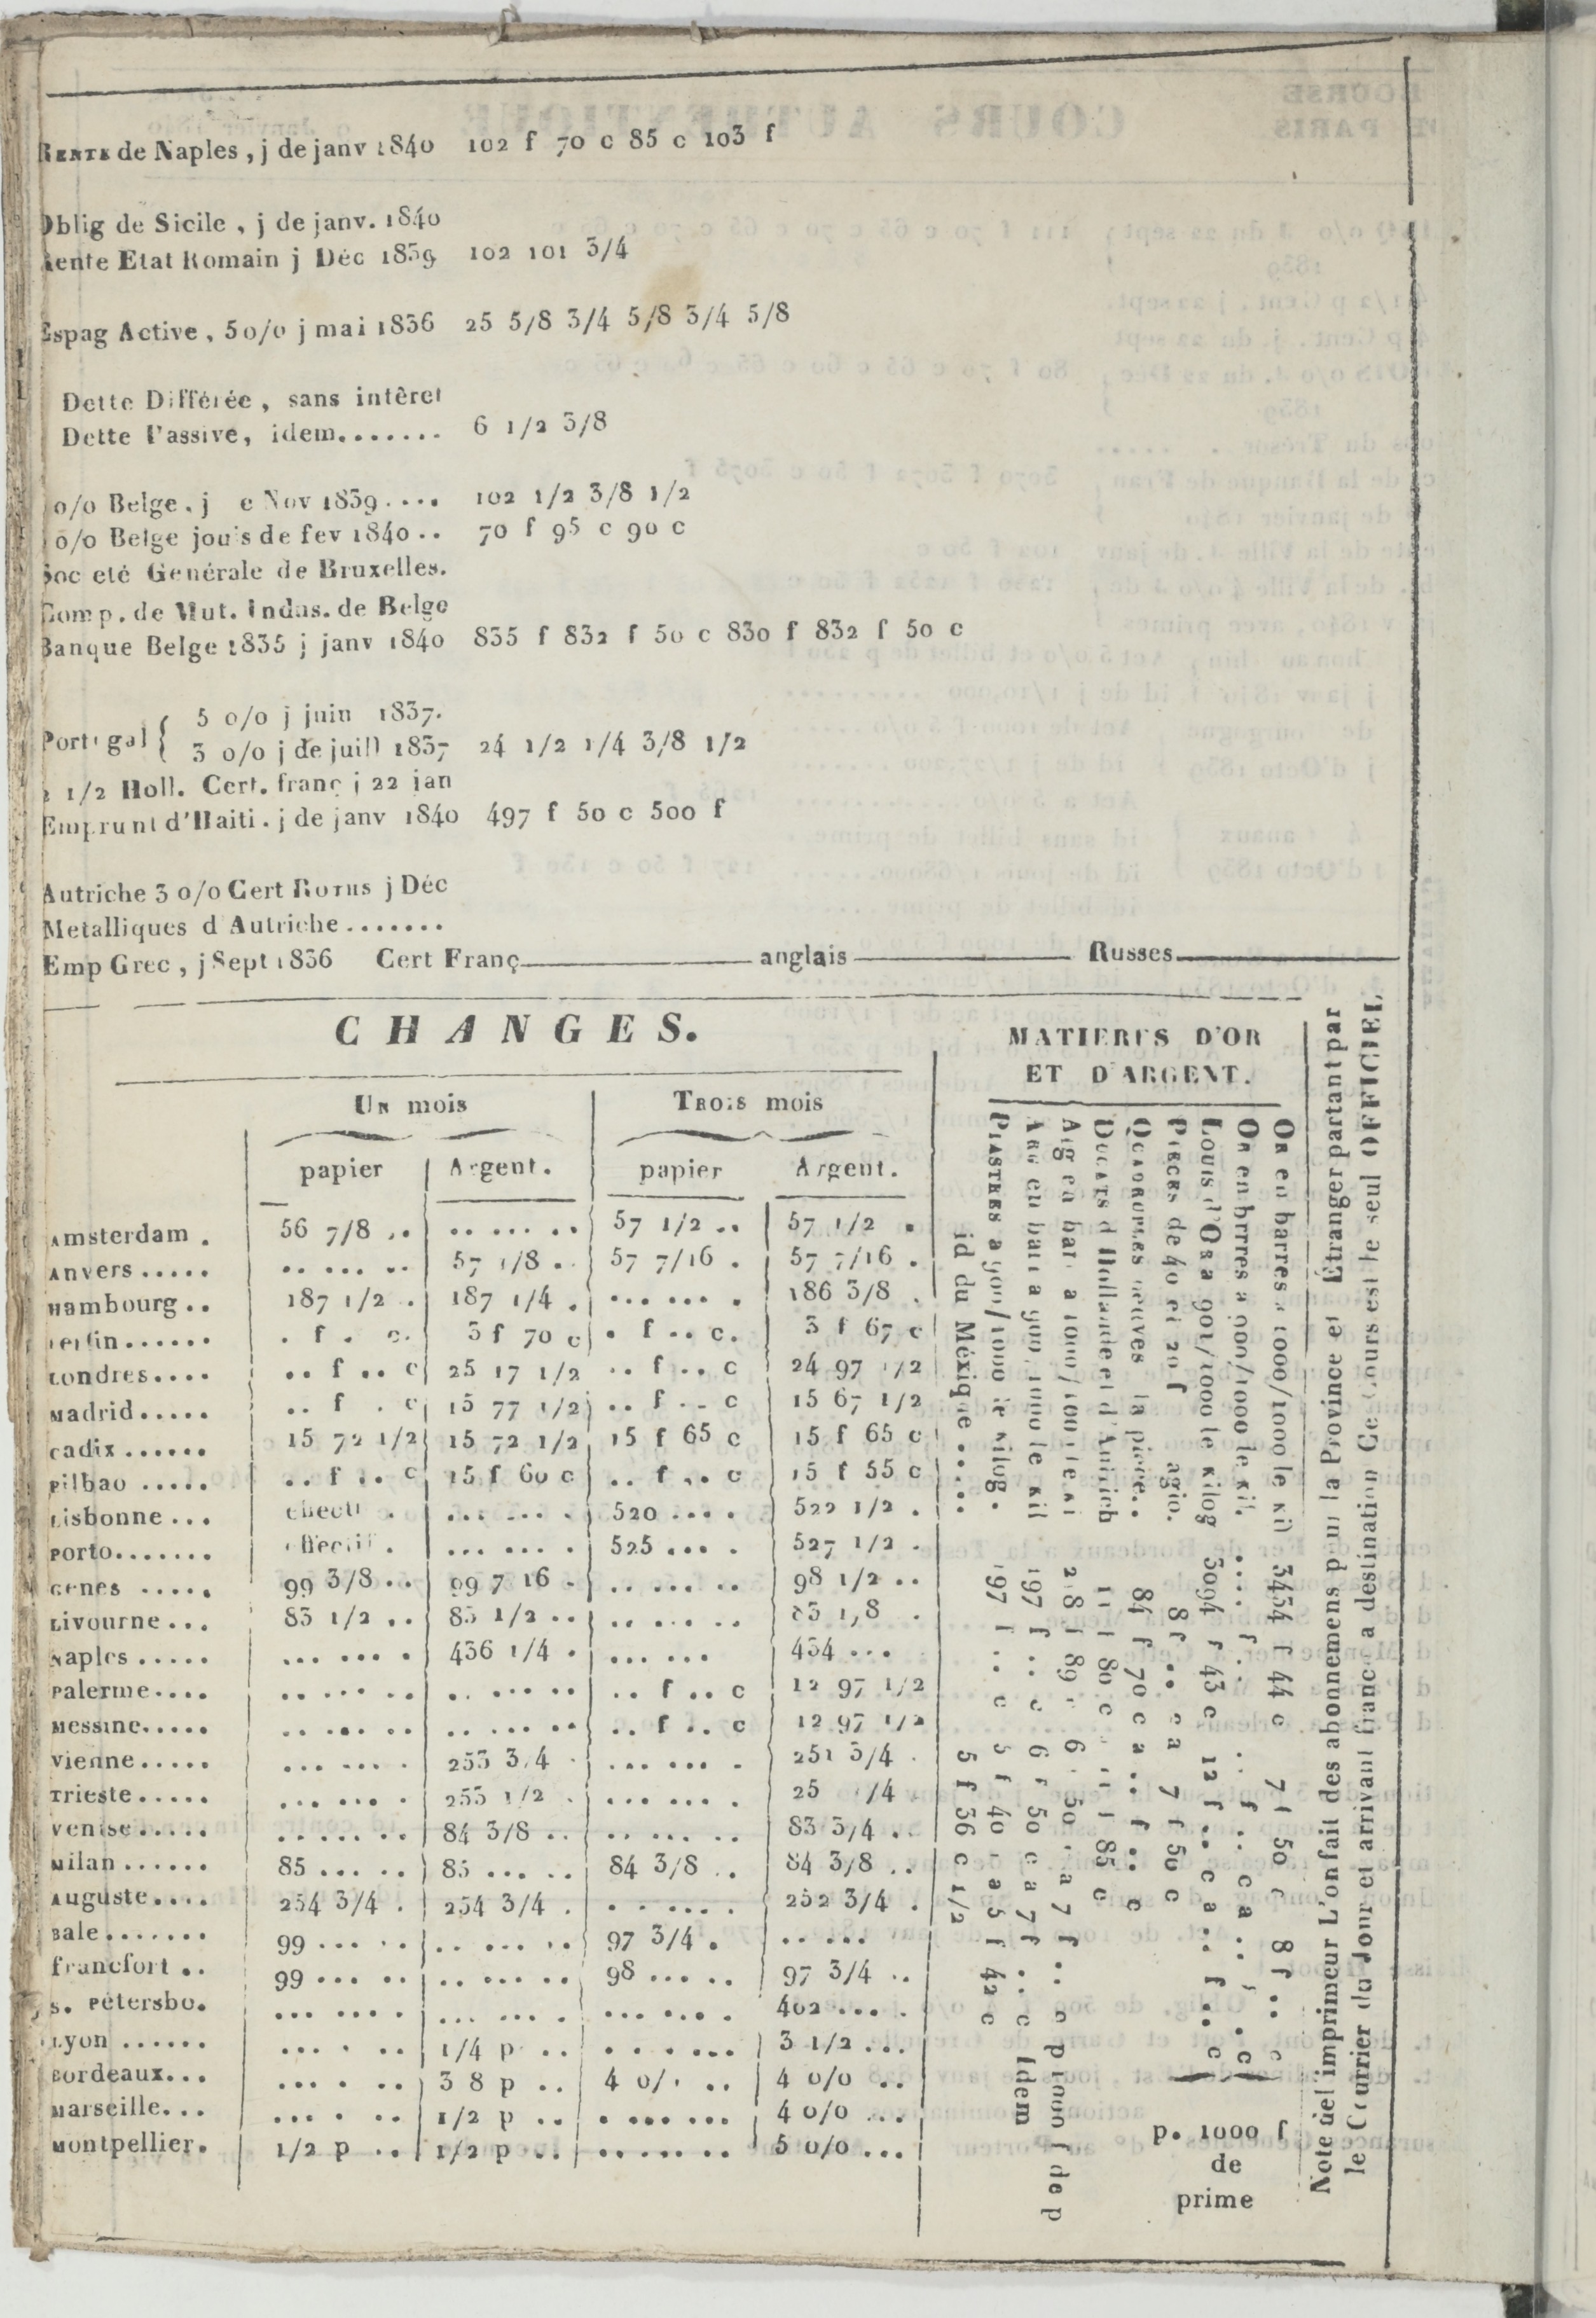 RENTE de Naples, j de janv 1840 102 f 70 c 85 c 103 f
Oblig de Sicile, j de janv. 1840
Rente Etat Romain j Déc 1839 102 101 3/4
Espag Active, 5 o/o j mai 1836 25 5/8 3/4 5/8 3/4 5/8
Dette Différée, sans intêret
Dette Passive, idem....... 6 1/2 3/8
o/o Belge, j e Nov 1839.... 102 1/2 3/8 1/2
o/o Belge jouis de fev 1840.. 70 f 95 c 90 c
Soc eté Genérale de Bruxelles.
Comp. de Mut. Indus. de Belge
Banque Belge 1835 j janv 1840 835 f 832 f 50 c 830 f 832 f 50 c
Portugal { 5 o/o j juin 1837.
3 o/o j de juill 1837 24 1/2 1/4 3/8 1/2
2 1/2 Holl. Cert. franç j 22 jan
Emprunt d'Haiti. j de janv 1840 497 f 50 c 500 f
Autriche 3 o/o Cert ROTHS j Déc
Metalliques d Autriche.......
Emp Grec, j Sept 1836 Cert Franç anglais Russes
CHANGES.
UN mois TROIS mois
papier Argent. papier Argent.
Amsterdam . 56 7/8 .. .. ... .. 57 1/2 .. 57 1/2 .
Anvers..... .. ... .. 57 1/8 .. 57 7/16 . 57 7/16 .
Hambourg.. 187 1/2 . 187 1/4 . ... ... . 186 3/8 .
Berlin...... . f . c. 3 f 70 c . f .. c. 3 f 67 c
Londres.... .. f .. c 25 17 1/2 .. f .. c 24 97 1/2
Madrid..... .. f . c 15 77 1/2 .. f .. c 15 67 1/2
Cadix...... 15 72 1/2 15 72 1/2 15 f 65 c 15 f 65 c
Bilbao..... .. f .. c 15 f 60 c .. f .. c 15 f 55 c
Lisbonne... effecti . ... ... . 520 .... 522 1/2 .
Porto....... effectif . ... ... . 525 ... . 527 1/2 .
Genes ..... 99 3/8 .. 99 7 16 . .. ... .. 98 1/2 ..
Livourne... 83 1/2 .. 83 1/2 .. .. ... .. 83 1/8 .
Naples ..... ... ... . 436 1/4 . ... ... 434 ...
Palerme.... .. ... .. .. ... .. .. f .. c 12 97 1/2
Messine..... .. ... .. .. ... .. .. f .. c 12 97 1/2
Vienne..... ... ... . 253 3/4 . ... ... . 251 3/4 .
Trieste..... ... ... . 253 1/2 . ... ... . 25 /4 .
Venise..... .. ... .. 84 3/8 .. .. ... .. 83 3/4 ..
Milan...... 85 ... .. 85 ... .. 84 3/8 .. 84 3/8 ..
Auguste.... 254 3/4 . 254 3/4 . . ... .. 252 3/4 .
Bale....... 99 ... .. .. ... .. 97 3/4 . .. ...
francfort .. 99 ... .. .. ... .. 98 ... .. 97 3/4 ..
S. Pétersbo. ... ... . ... ... . ... ... . 402 ... .
Lyon ...... ... . .. 1/4 p .. . . . ... 3 1/2 ...
Bordeaux... ... . .. 3 8 p .. 4 o/ .. 4 o/o ..
Marseille... ... . .. 1/2 p .. . ... ... 4 o/o ...
Montpellier. 1/2 p .. 1/2 p .. .. ... .. 5 o/o ...
MATIERES D'OR
ET D'ARGENT.
OR en barres a 1000/1000 le kil 3434 f 44 c 7 f 50 c 8 f .. c
OR en brrres a 900/1000 le kil. ... f .. .. f .. c a .. f .. c
LOUIS d'OR a 901/1000 le Kilog 3094 f 43 c 12 f .. c a .. f .. c
PIECES de 40 et 20 f agio. 8 f .. c a 7 f 50 c
QUADRUPLES neuves la pièce. . 84 f 70 c a .. f .. c
DUCATS d Hollande et d'Autrich 11 f 80 c 11 f 85 c
Arg en bar a 1000/1000 le kil 218 f 89 c 6 f 50 c a 7 f .. c p 1000 f de p
ARG en barr a 900 1000 le kil 197 f .. c 6 f 50 c a 7 f .. c Idem
PIASTRES a 900/1000 le Kilog. 197 f .. c 5 f 40 c a 5 f 42 c
id du Méxique ..... 5 f 36 c 1/2
p. 1000 f
de
prime
Note del imprimeur L'on fait des abonnemens pour la Province et Étranger partant par
le Courrier du Jour et arrivant franc a destination Ce Cours est le seul OFFICIEL